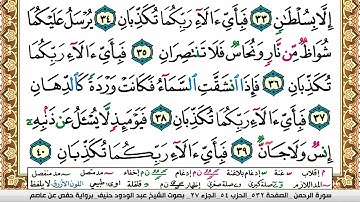 إِلَّا بِسُلْطَٰنٍ ٣٣ فَبِأَيِّ ءَالَآءِ رَبِّكُمَا تُكَذِّبَانِ ٣٤ يُرْسَلُ عَلَيْكُمَا
شُوَاظٌ مِّن نَّارٍ وَنُحَاسٌ فَلَا تَنتَصِرَانِ ٣٥ فَبِأَيِّ ءَالَآءِ رَبِّكُمَا
تُكَذِّبَانِ ٣٦ فَإِذَا ٱنشَقَّتِ ٱلسَّمَآءُ فَكَانَتْ وَرْدَةً كَٱلدِّهَانِ
٣٧ فَبِأَيِّ ءَالَآءِ رَبِّكُمَا تُكَذِّبَانِ ٣٨ فَيَوْمَئِذٍ لَّا يُسْـَٔلُ عَن ذَنۢبِهِۦٓ
إِنسٌ وَلَا جَآنٌّ ٣٩ فَبِأَيِّ ءَالَآءِ رَبِّكُمَا تُكَذِّبَانِ ٤٠
سورة الرحمن الصفحة ٥٣٢ الحزب ٥٤ الجزء ٢٧ بصوت الشيخ عبد الودود حنيف برواية حفص عن عاصم